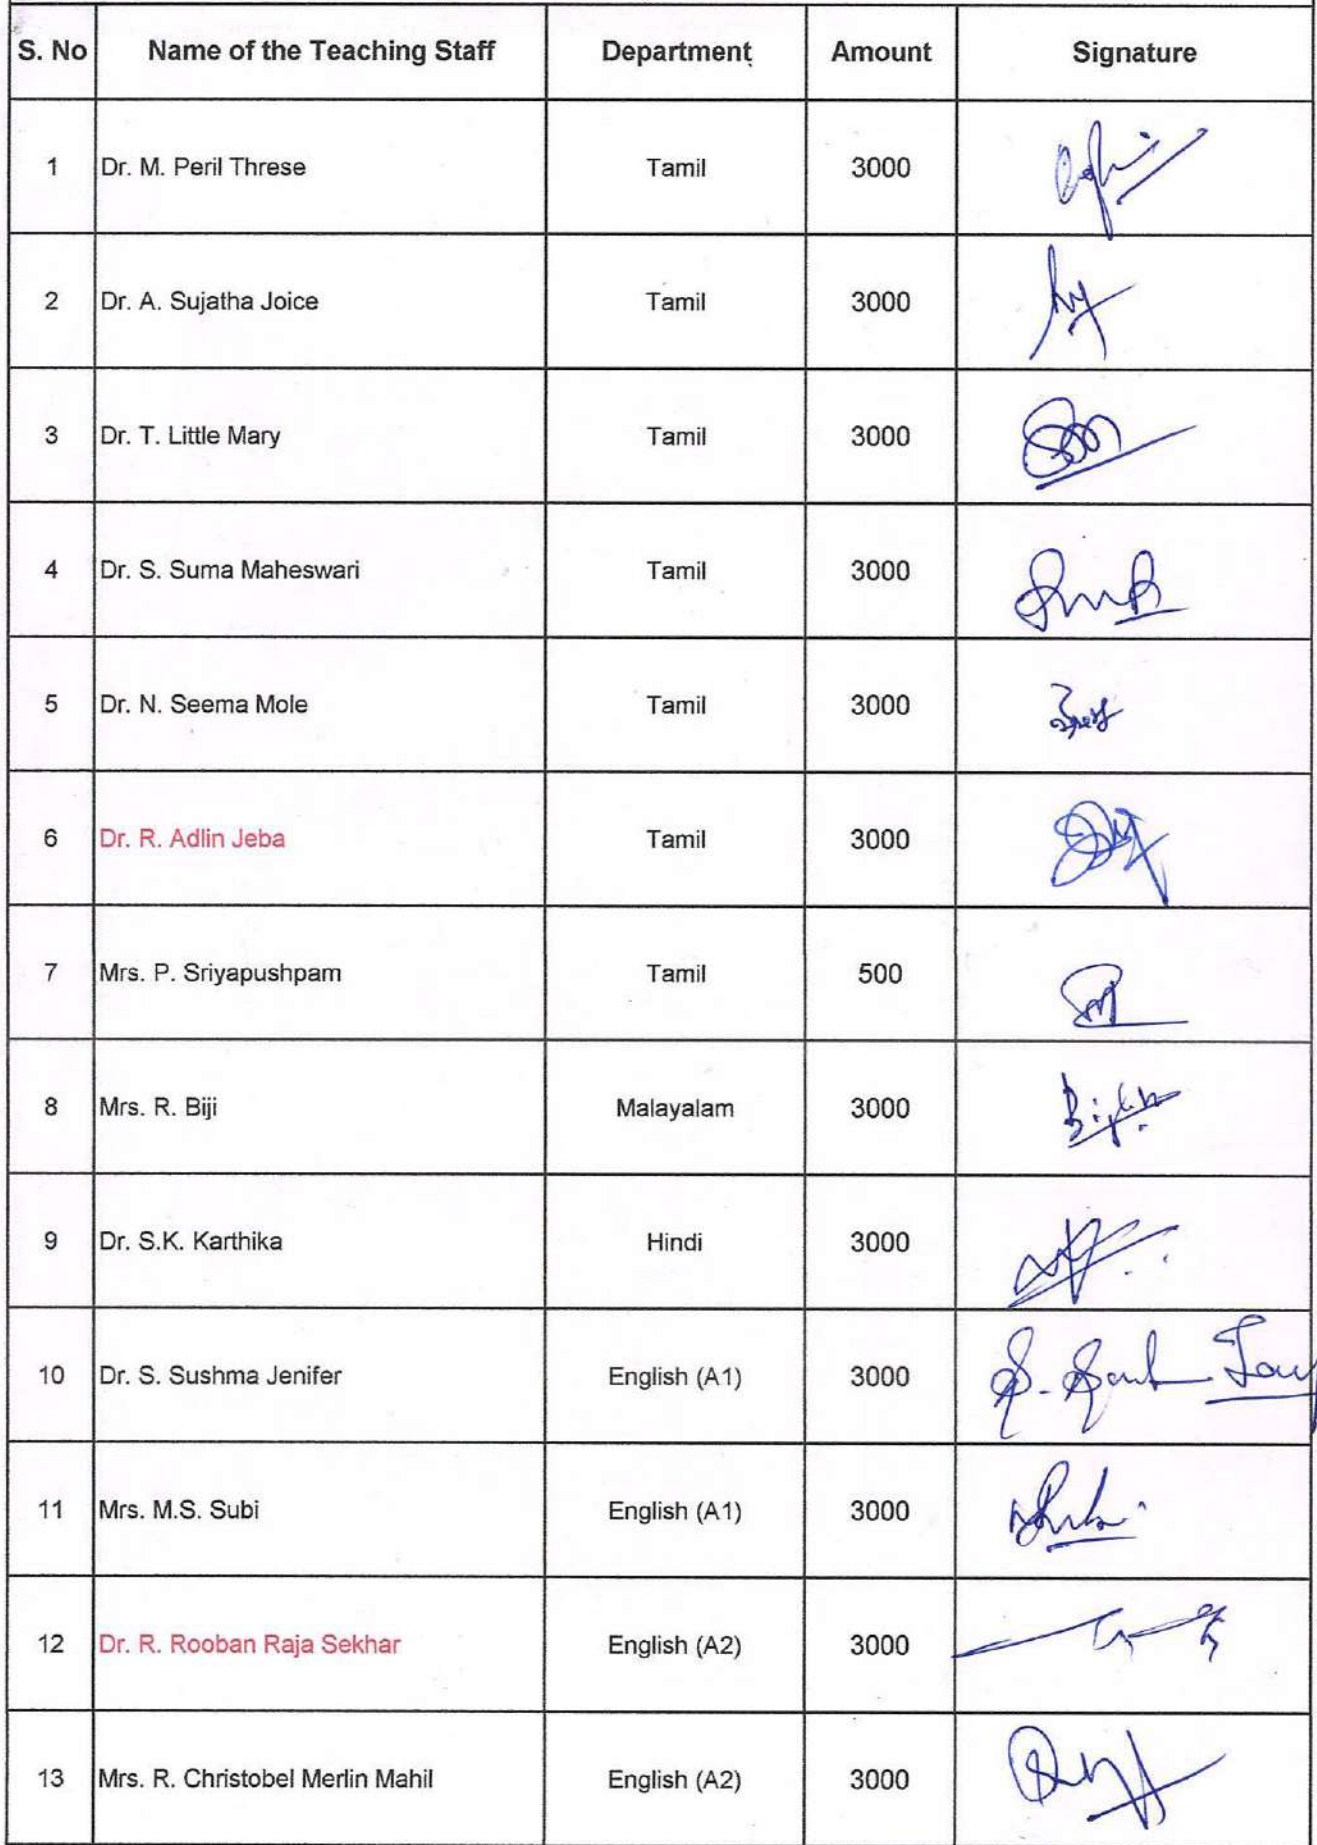 S. No Name of the Teaching Staff Department Amount Signature
1 Dr. M. Peril Threse Tamil 3000
2 Dr. A. Sujatha Joice Tamil 3000
3 Dr. T. Little Mary Tamil 3000
4 Dr. S. Suma Maheswari Tamil 3000
5 Dr. N. Seema Mole Tamil 3000
6 Dr. R. Adlin Jeba Tamil 3000
7 Mrs. P. Sriyapushpam Tamil 500
8 Mrs. R. Biji Malayalam 3000
9 Dr. S.K. Karthika Hindi 3000
10 Dr. S. Sushma Jenifer English (A1) 3000
11 Mrs. M.S. Subi English (A1) 3000
12 Dr. R. Rooban Raja Sekhar English (A2) 3000
13 Mrs. R. Christobel Merlin Mahil English (A2) 3000